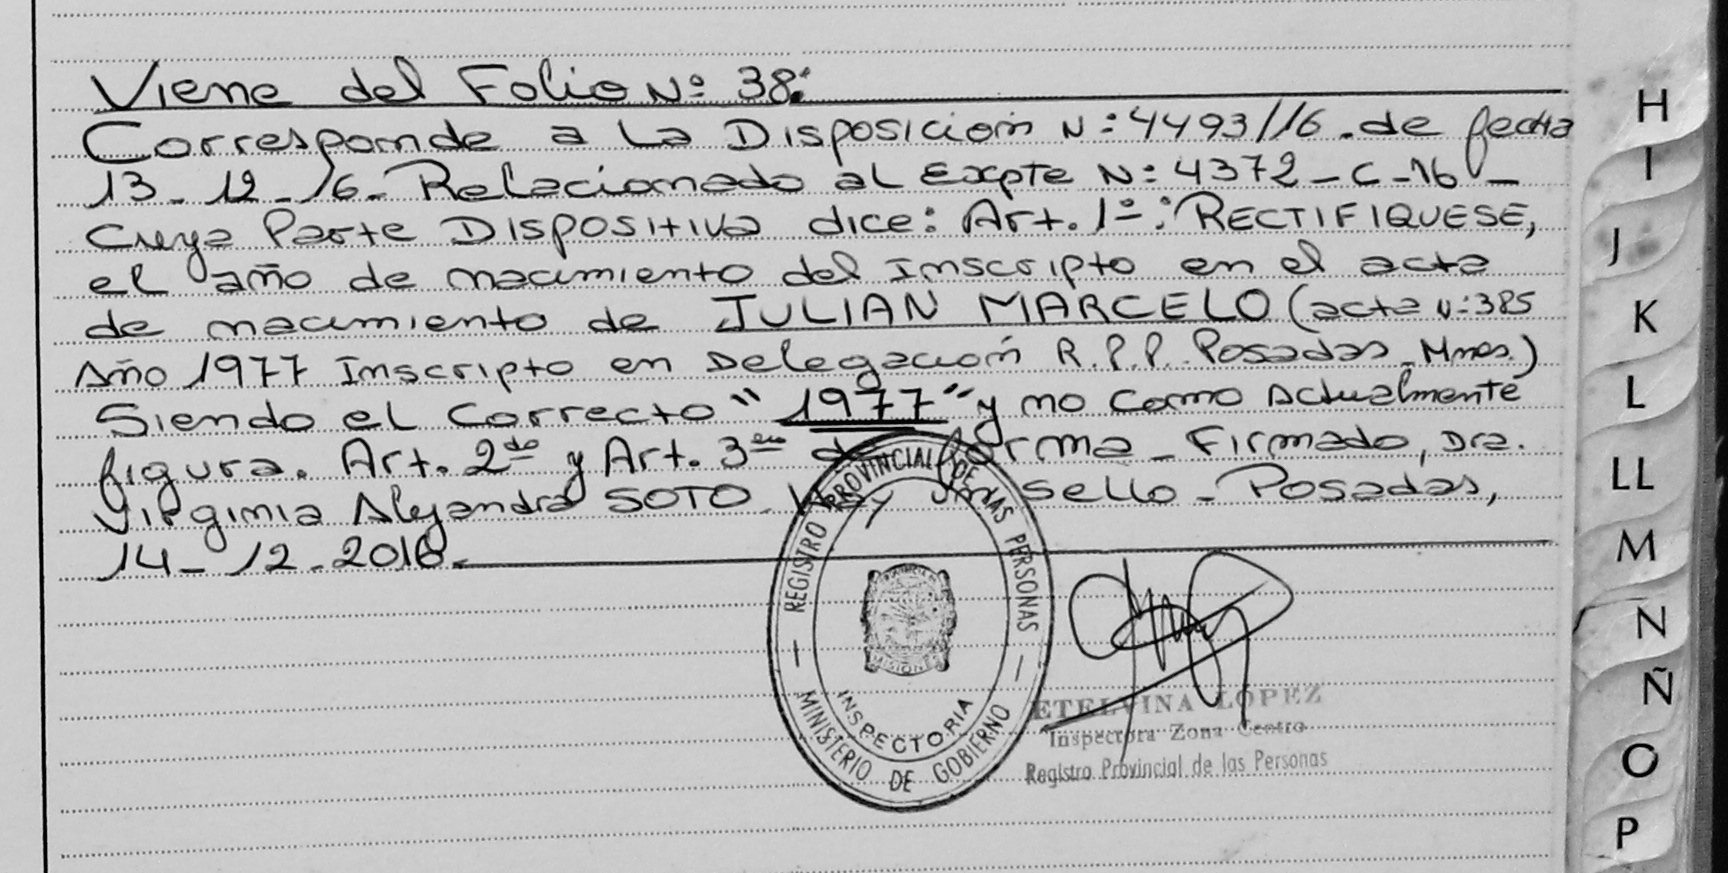 Viene del Folio Nº 38:
Corresponde a la Disposición Nº: 4493/16. de fecha
13-12-16- Relacionado al Expte Nº: 4372-C-16-
Cuya Parte Dispositiva dice: Art. 1º: RECTIFIQUESE,
el año de nacimiento del Inscripto en el acta
de nacimiento de JULIAN MARCELO (acta Nº: 385
Año 1977 Inscripto en Delegación R.P.P. Posadas-Mnes.)
Siendo el Correcto "1977" y no como Actualmente
figura. Art. 2do y Art. 3ero de forma- Firmado, Dra.
Virginia Alejandra SOTO. Hay un sello- Posadas,
14-12-2016.
REGISTRO PROVINCIAL DE LAS PERSONAS
MISIONES
INSPECTORIA
MINISTERIO DE GOBIERNO
ETELVINA LOPEZ
Inspectora Zona Centro
Registro Provincial de las Personas
H
I
J
K
L
LL
M
N
Ñ
O
P